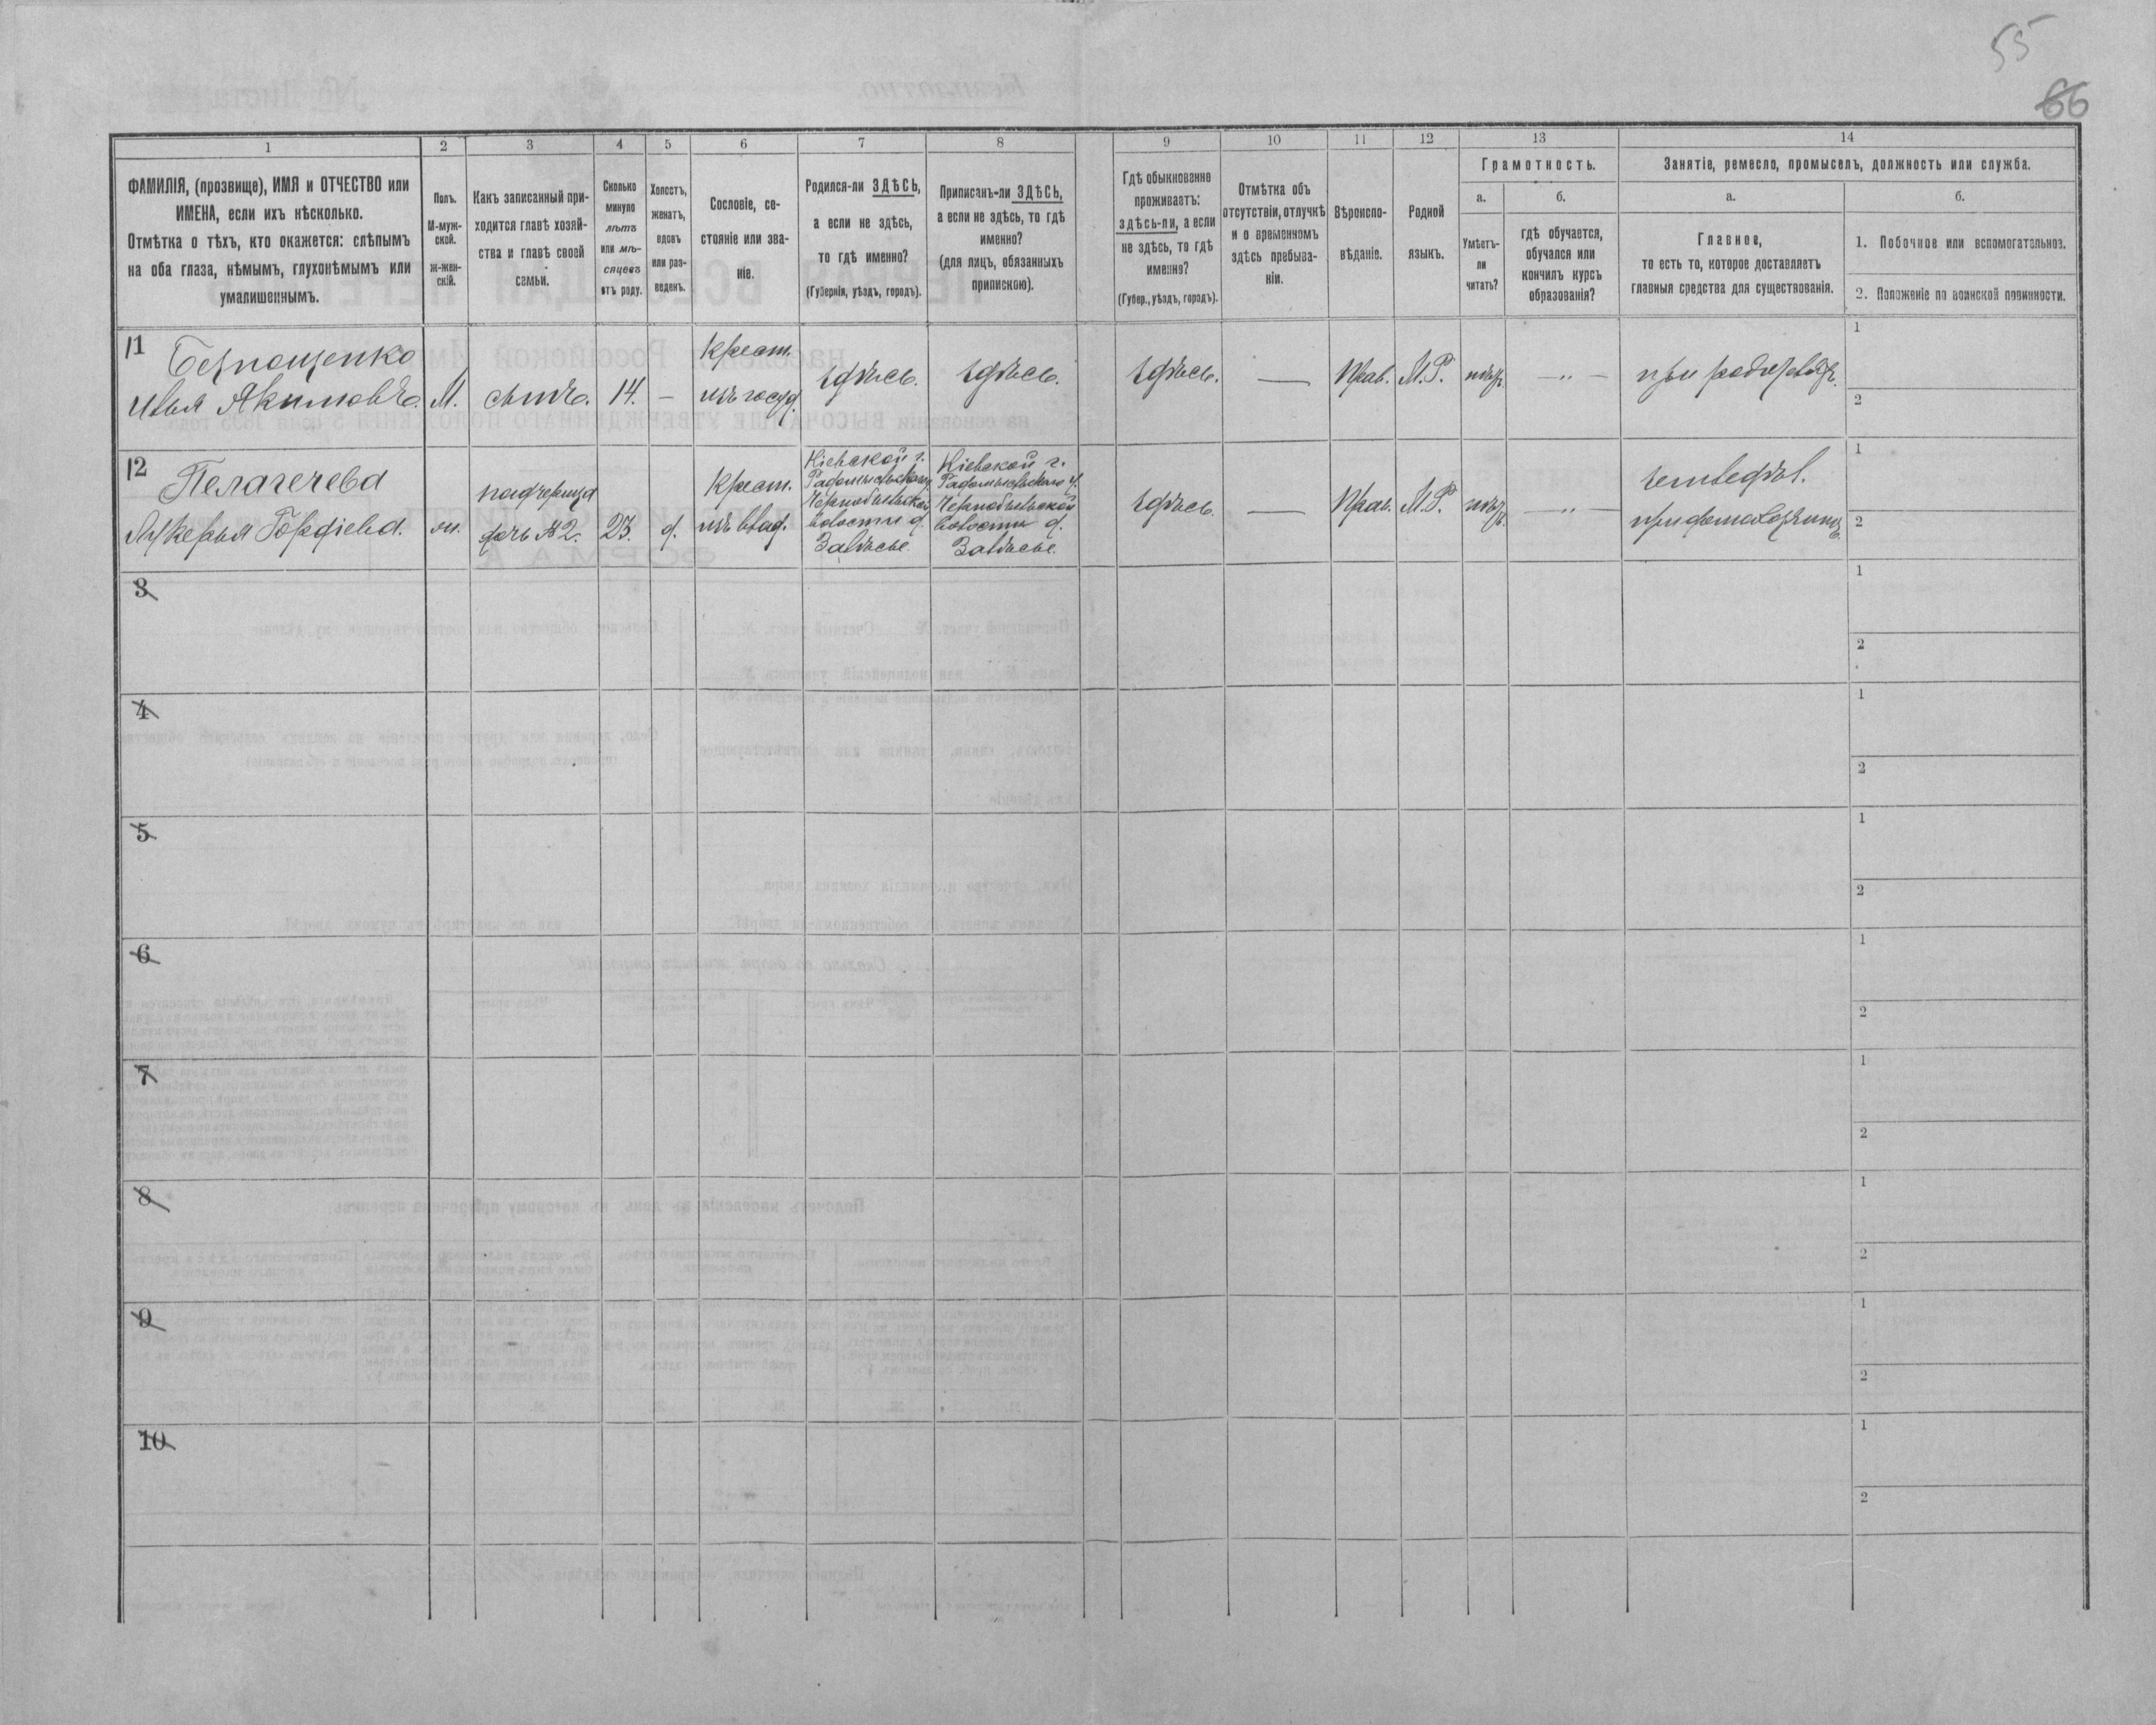 55
66
1
2
3
4
5
6
7
8
9
10
11
12
13
14
ФАМИЛІЯ, (прозвище), ИМЯ и ОТЧЕСТВО или
ИМЕНА, если ихъ нѣсколько.
Отмѣтка о тѣхъ, кто окажется: слѣпымъ
на оба глаза, нѣмымъ, глухонѣмымъ или
умалишеннымъ.
Полъ.
М-муж-
ской.
ж-жен-
скій.
Какъ записанный при-
ходится главѣ хозяй-
ства и главѣ своей
семьи.
Сколько
минуло
лѣтъ
или мѣ-
сяцевъ
отъ роду.
Холостъ,
женатъ,
вдовъ
или раз-
веденъ.
Сословіе, со-
стояніе или зва-
ніе.
Родился-ли ЗДѢСЬ,
а если не здѣсь,
то гдѣ именно?
(Губернія, уѣздъ, городъ).
Приписанъ-ли ЗДѢСЬ,
а если не здѣсь, то гдѣ
именно?
(для лицъ, обязанныхъ
припискою).
Гдѣ обыкновенно
проживаетъ:
здѣсь-ли, а если
не здѣсь, то гдѣ
именно?
(Губер., уѣздъ, городъ).
Отмѣтка объ
отсутствіи, отлучкѣ
и о временномъ
здѣсь пребыва-
ніи.
Вѣроиспо-
вѣданіе.
Родной
языкъ.
Грамотность.
а.
Умѣетъ-
ли
читать?
б.
гдѣ обучается,
обучался или
кончилъ курсъ
образованія?
Занятіе, ремесло, промыселъ, должность или служба.
а.
Главное,
то есть то, которое доставляетъ
главныя средства для существованія.
б.
1. Побочное или вспомогательное.
2. Положеніе по воинской повинности.
11
Безпощенко
Илья Якимовъ.
М.
сынъ.
14.
—
Крест.
изъ госуд.
здѣсь.
здѣсь.
здѣсь.
—
Прав.
М.Р.
нѣтъ
— „ —
при
1
2
12
Пелагечева
Лукерья Гордіева.
ж.
падчерица
дочь №2.
23.
д.
Крест.
изъ влад.
Кіевской г.
Радомысльскаго у.
Чернобыльской
волости д.
Залѣсье.
Кіевской г.
Радомысльскаго у.
Чернобыльской
волости д.
Залѣсье.
здѣсь.
—
Прав.
М.Р.
нѣтъ
— „ —
земледѣл.
1
2
3
1
2
4
1
2
5
1
2
6
1
2
7
1
2
8
1
2
9
1
2
10
1
2